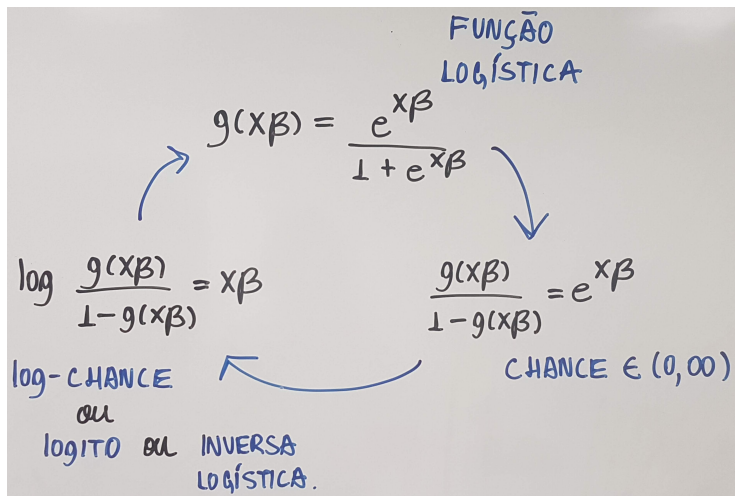 FUNÇÃO
LOGÍSTICA
g(Xβ) = e^{Xβ} / (1 + e^{Xβ})
log g(Xβ) / (1 - g(Xβ)) = Xβ
g(Xβ) / (1 - g(Xβ)) = e^{Xβ}
log-CHANCE
ou
logITO ou INVERSA
LOGÍSTICA.
CHANCE ∈ (0,∞)